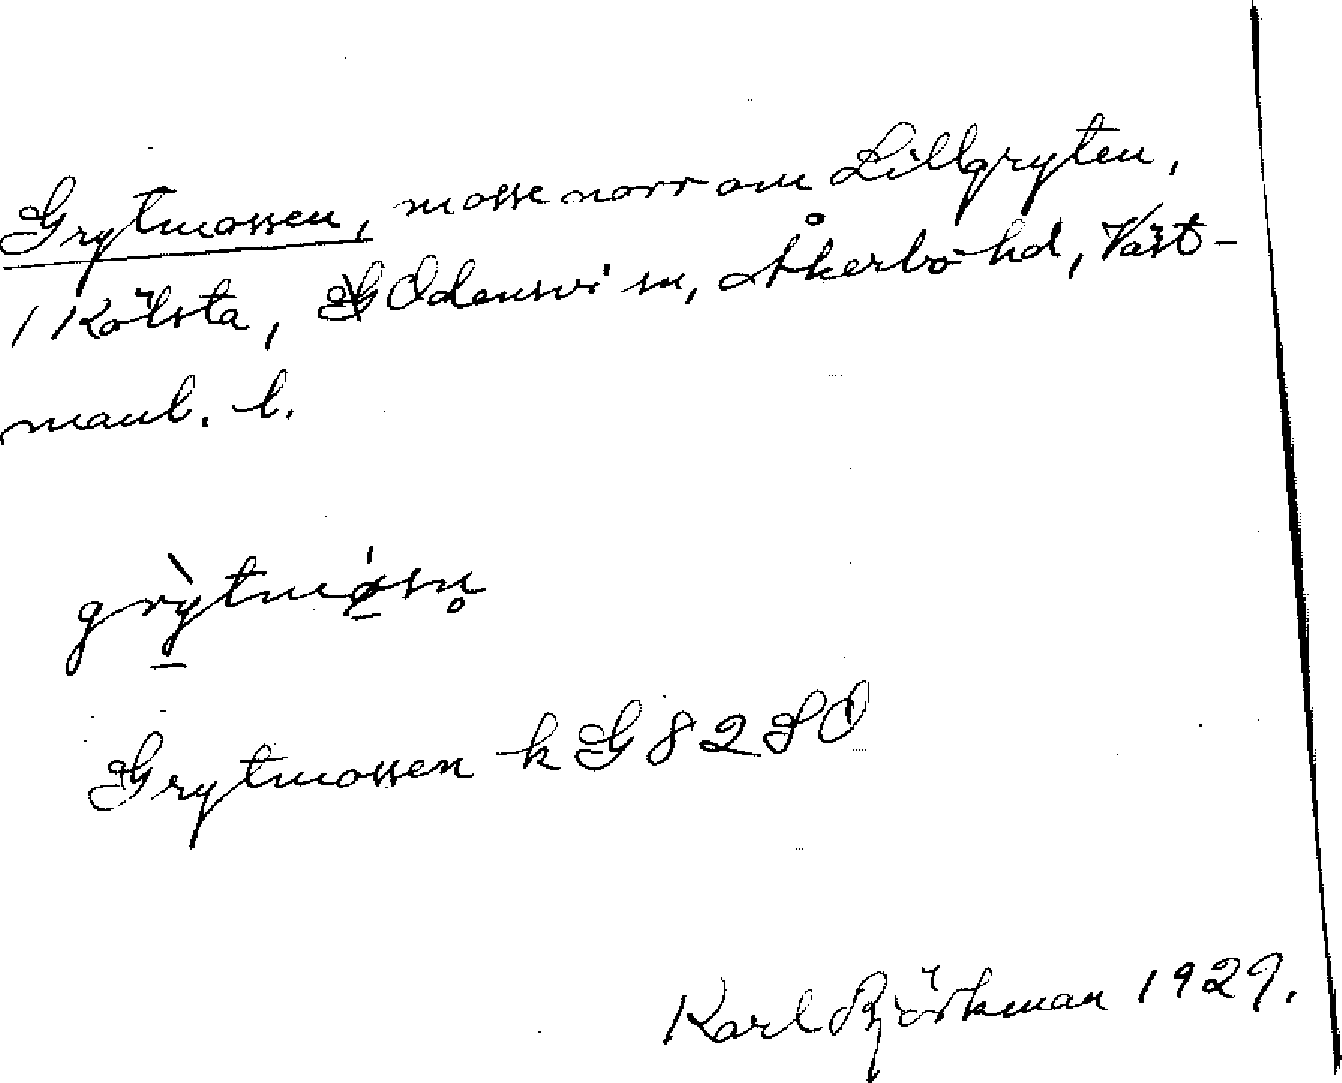 Grytmossen, mosse norr om Lillgryten,
/ Kölsta, Odensvi sn, Åkerbo hd, Väst-
manl. l.
grỳtmósn̥
Grytmossen k G 8280
Karl Björkman 1929.